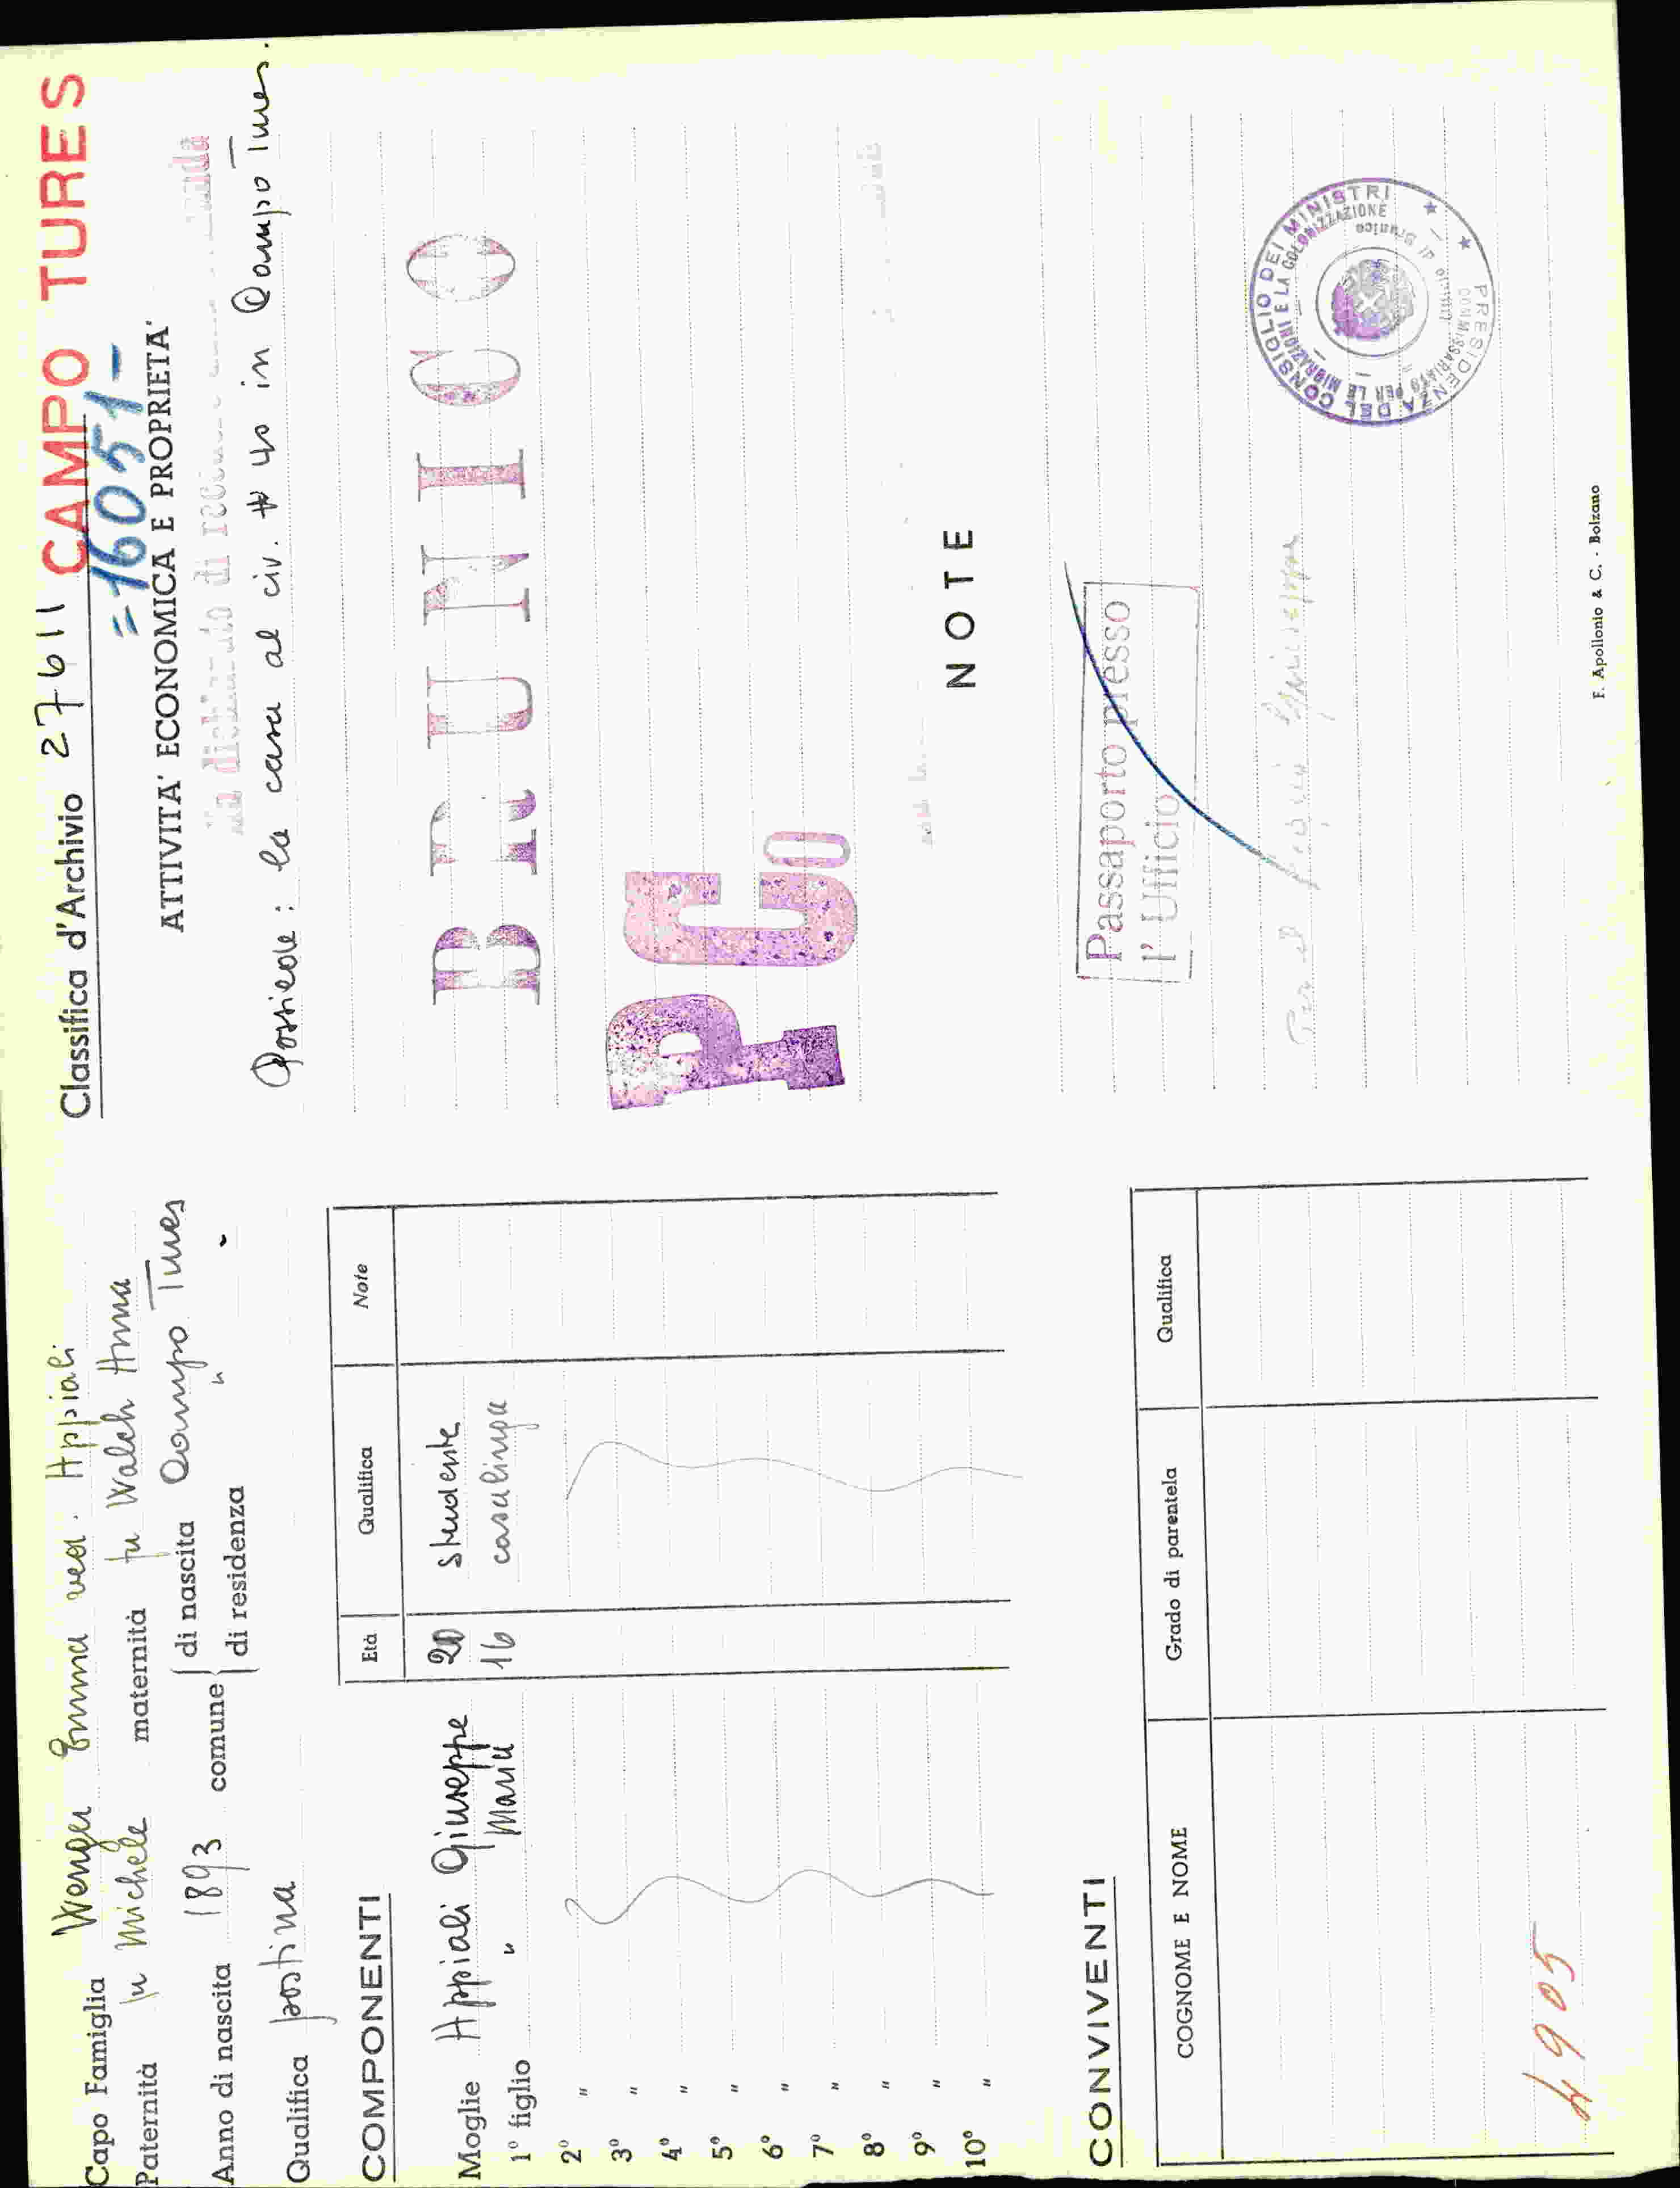 Classifica d'Archivio 27611 CAMPO TURES
=16051-
Capo Famiglia Wenger Emma ved. Appiali
Paternità fu Michele maternità fu Walch Anna
Anno di nascita 1893 comune di nascita Campo Tures
di residenza " "
Qualifica postina
COMPONENTI
Età Qualifica Note
Moglie Appiali Giuseppe 20 studente
1º figlio " Maria 16 casalinga
2º "
3º "
4º "
5º "
6º "
7º "
8º "
9º "
10º "
CONVIVENTI
COGNOME E NOME Grado di parentela Qualifica
4905
ATTIVITA' ECONOMICA E PROPRIETA'
Ha dichiarato di
Possiede: la casa al civ. # 40 in Campo Tures.
BRUNICO
PCo
NOTE
Passaporto presso
l'Ufficio
PRESIDENZA DEL CONSIGLIO DEI MINISTRI
COMMISSARIATO PER LE MIGRAZIONI E LA COLONIZZAZIONE
Ufficio di Brunico
F. Apollonio & C. - Bolzano